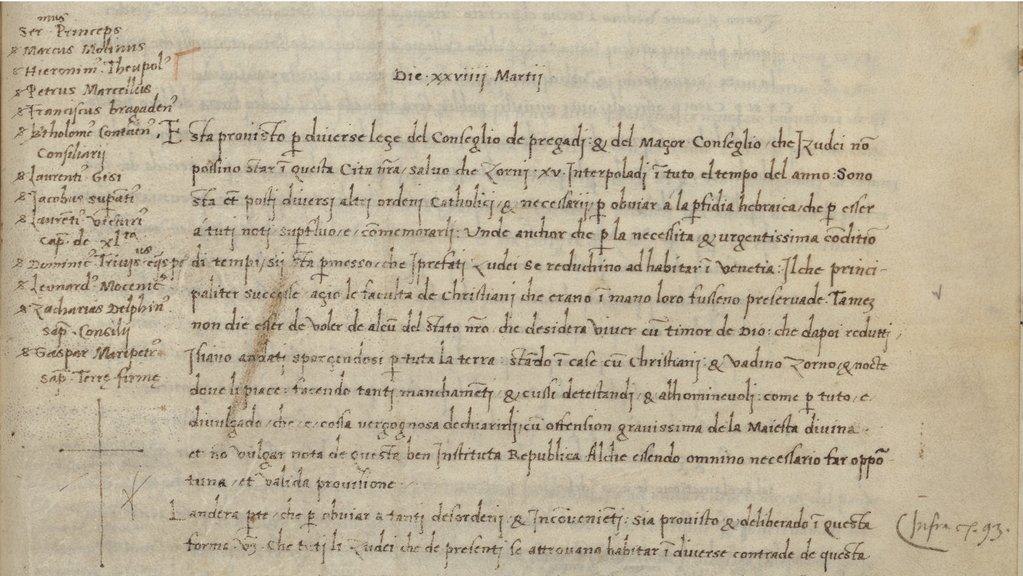 Ser.mus Princeps
& Marcus Molinus
& Hieronim' Theupol'
& Petrus Marcellus
& Franciscus bragaden'
& Btholome' Contarin'
Consiliarii
& Laurenti' Gisi
& Jacobus supati'
& Laureti' Vicuri'
Cap. de xl.ta
& Dominic' Trivisus eqs pr
& Leonard' Mocenic'
& Zacharias Delphin'
Sap. Consilij
& Gaspar Maripetr'
Sap. Terrę firmę
Die · xxviiij Martij
E sta provisto p diverse leze del Conseglio de pregadi: & del Maçor Conseglio, che Zudei nō
possino star ī questa Cita nr̄a, salvo che Zorni: xv. Interpoladi ī tuto el tempo del anno: Sono
sta et posti diversi altri ordeni Catholici, & necessarij p obviar a la pfidia hebraica, che p esser
á tuti noti supfluo, e, comemorarli: Unde anchor che p la necessita & urgentissima cōditiō
di tempi, sij sta pmesso, che I prefati Zudei se reduchino ad habitar ī Venetia: Il che princi-
paliter successe, açio le faculta de Christiani che erano ī mano loro fusseno preservade. Tamen
non die esser de voler de alcū del stato nr̄o, che desidera viver cū timor de Dio: che dapoi redutti,
I hano andati sporgendosi p tuta la terra: stādo ī case cū Christiani: & vadino Zorno, & nocte
dove li piace: facendo tanti manchamēti & cussi detestandi, & abhominevoli: come p tuto, e,
divulgado, che, e, cossa vergognosa dechiarirli; cū offension gravissima de la Maiesta divina
et nō vulgar nota de questa ben Instituta Republica. Al che essendo omnino necessario far oppō
tuna, et valida provisione:
L andera pte, che p obviar a tanti desordeni: & Incōvenieti: sia provisto & deliberado ī questa
forma: vz. Che tuti li Zudei che de presenti se attrovano habitar ī diverse contrade de questa
Infra c. 93.